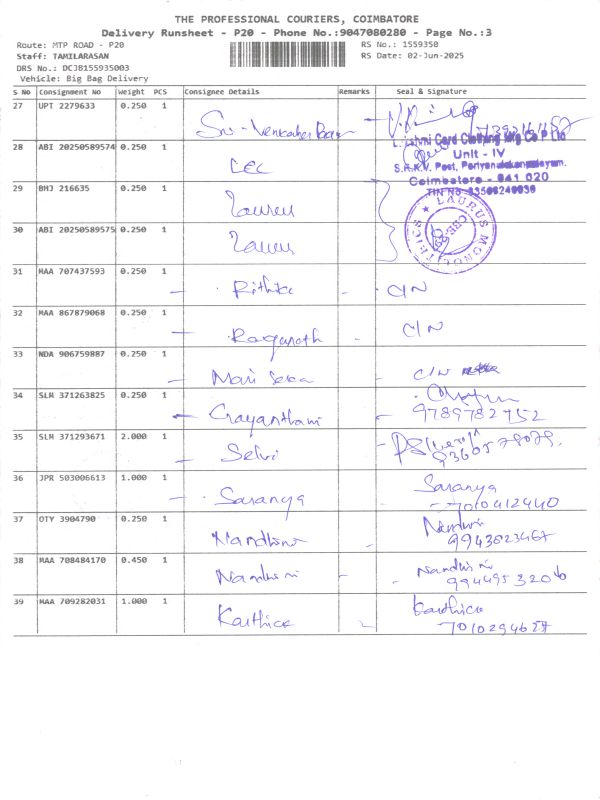 THE PROFESSIONAL COURIERS, COIMBATORE
Delivery Runsheet - P20 - Phone No.:9047080280 - Page No.:3
Route: MTP ROAD - P20
RS No.: 1559350
Staff: TAMILARASAN
RS Date: 02-Jun-2025
DRS No.: DCJB155935003
Vehicle: Big Bag Delivery
S No Consignment No Weight PCS Consignee Details Remarks Seal & Signature
27 UPT 2279633 0.250 1
28 ABI 20250589574 0.250 1 LCC
L Card Clothing Mfg Co P Ltd
Unit - IV
S.R.K.V. Post, Periyanaickenpalayam.
Coimbatore - 641 020
29 BMJ 216635 0.250 1
LAURUS MONOLITHICS
CBE-29
30 ABI 20250589575 0.250 1
31 MAA 707437593 0.250 1 - Rithika - C/N
32 MAA 867879068 0.250 1 - Ragunath - C/N
33 NDA 906759887 0.250 1 - Mari - C/N
34 SLM 371263825 0.250 1 - Gayanthani -
9789782752
35 SLM 371293671 2.000 1 - Selvi -
36 JPR 503006613 1.000 1 - Saranya - Saranya
7010412440
37 OTY 3904790 0.250 1 Nandhini
9943023467
38 MAA 708484170 0.450 1 Nandhini - Nandhini
39 MAA 709282031 1.000 1 Karthica - Karthica